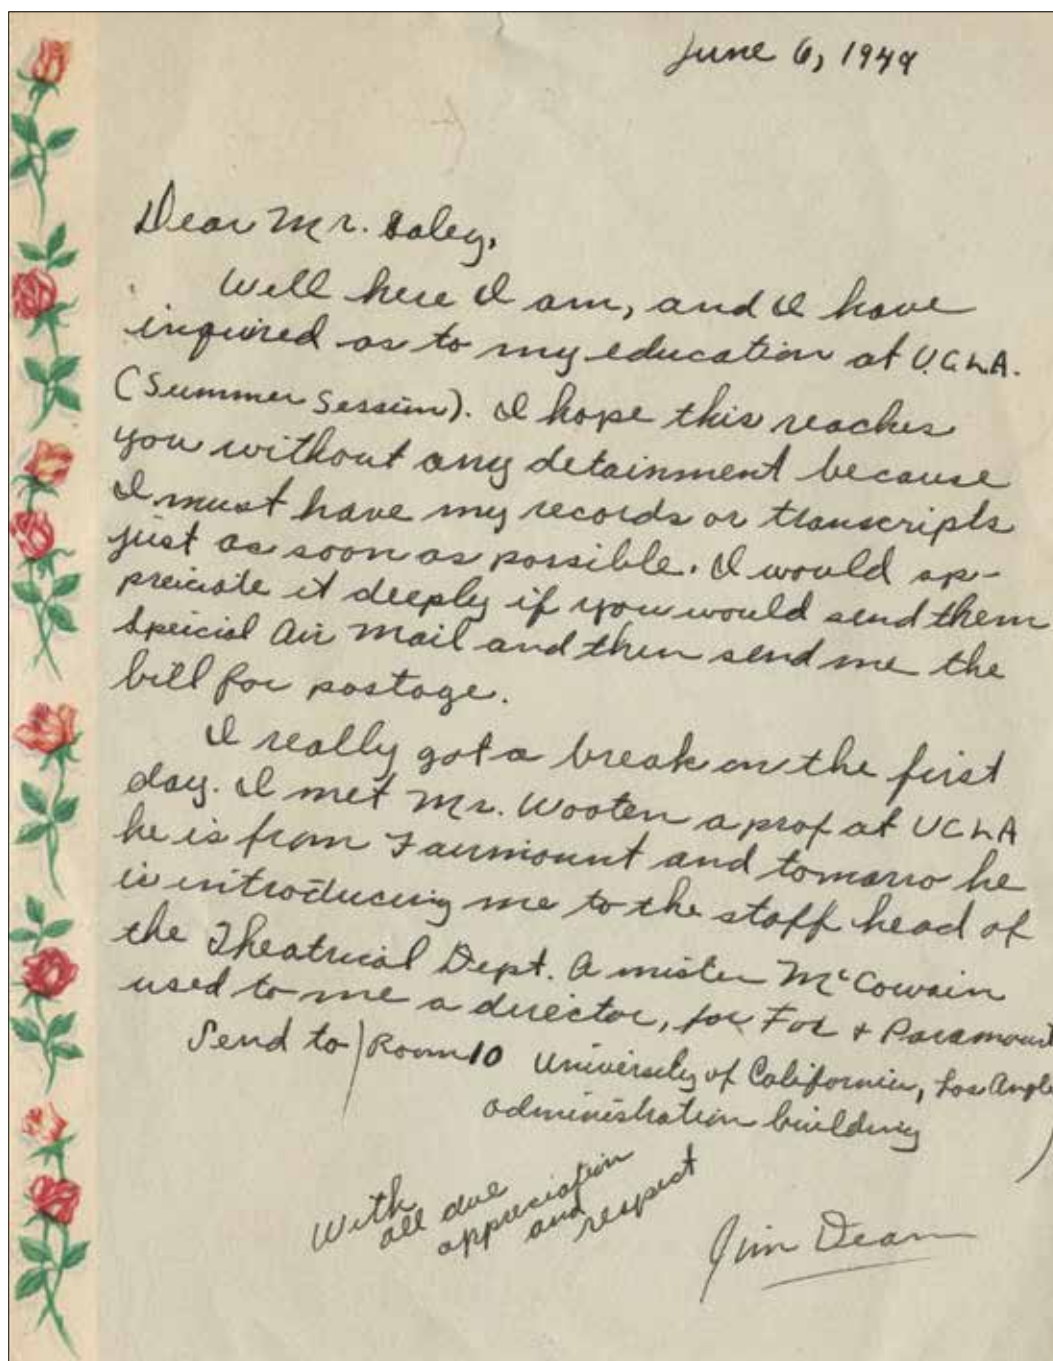 June 6, 1949
Dear Mr. Saley,
Well here I am, and I have
inquired as to my education at U.C.L.A.
(Summer Session). I hope this reaches
you without any detainment because
I must have my records or transcripts
just as soon as possible. I would ap-
preiciate it deeply if you would send them
Speicial Air Mail and then send me the
bill for postage.
I really got a break on the first
day. I met Mr. Wooten a prof at UCLA
he is from Fairmount and tomarro he
is introducing me to the staff head of
the Theatrical Dept. A mister McCowain
used to me a director, for Fox + Paramount
Send to) Room 10 University of California, Los Angle
administration building )
With
all due
appreciation
and
respect
Jim Dean